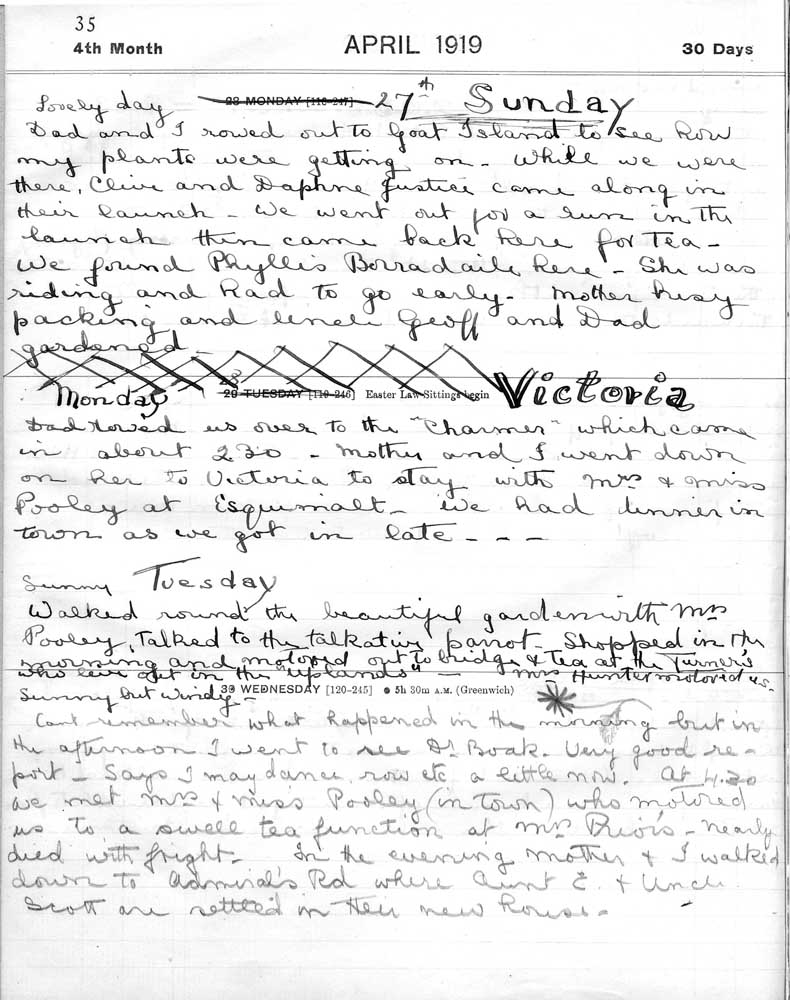 35
4th Month APRIL 1919 30 Days
Lovely day 28 MONDAY [118-247] 27th Sunday
Dad and I rowed out to Goat Island to see how
my plants were getting on - While we were
there, Clive and Daphne Justice came along in
their launch - We went out for a run in the
launch then came back here for tea -
We found Phyllis Borradaile here - She was
riding and had to go early - Mother busy
packing and Uncle Geoff and Dad
gardened -
Monday 29 TUESDAY [119-246] Easter Law Sittings begin Victoria
28
Dad rowed us over to the "Charmer" which came
in about 2 30 - Mother and I went down
on her to Victoria to stay with Mrs & Miss
Pooley at Esquimalt - We had dinner in
town as we got in late - - -
Sunny Tuesday
Walked round the beautiful garden with Mrs
Pooley, Talked to the talkative parrot - Shopped in the
morning and motored out to bridge & tea at the Turner's
who live out in the "Uplands" - Mrs Hunter motored us.
Sunny but windy - 30 WEDNESDAY [120-245] ● 5h 30m A.M. (Greenwich)
Cant remember what happened in the morning but in
the afternoon I went to see Dr Boak. Very good re-
port - Says I may dance, row etc a little now. At 4.30
we met Mrs & Miss Pooley (in town) who motored
us to a swell tea function at Mrs Prior's - nearly
died with fright - In the evening Mother & I walked
down to Admirals Rd where Aunt E. & Uncle
Scott are settled in their new house -